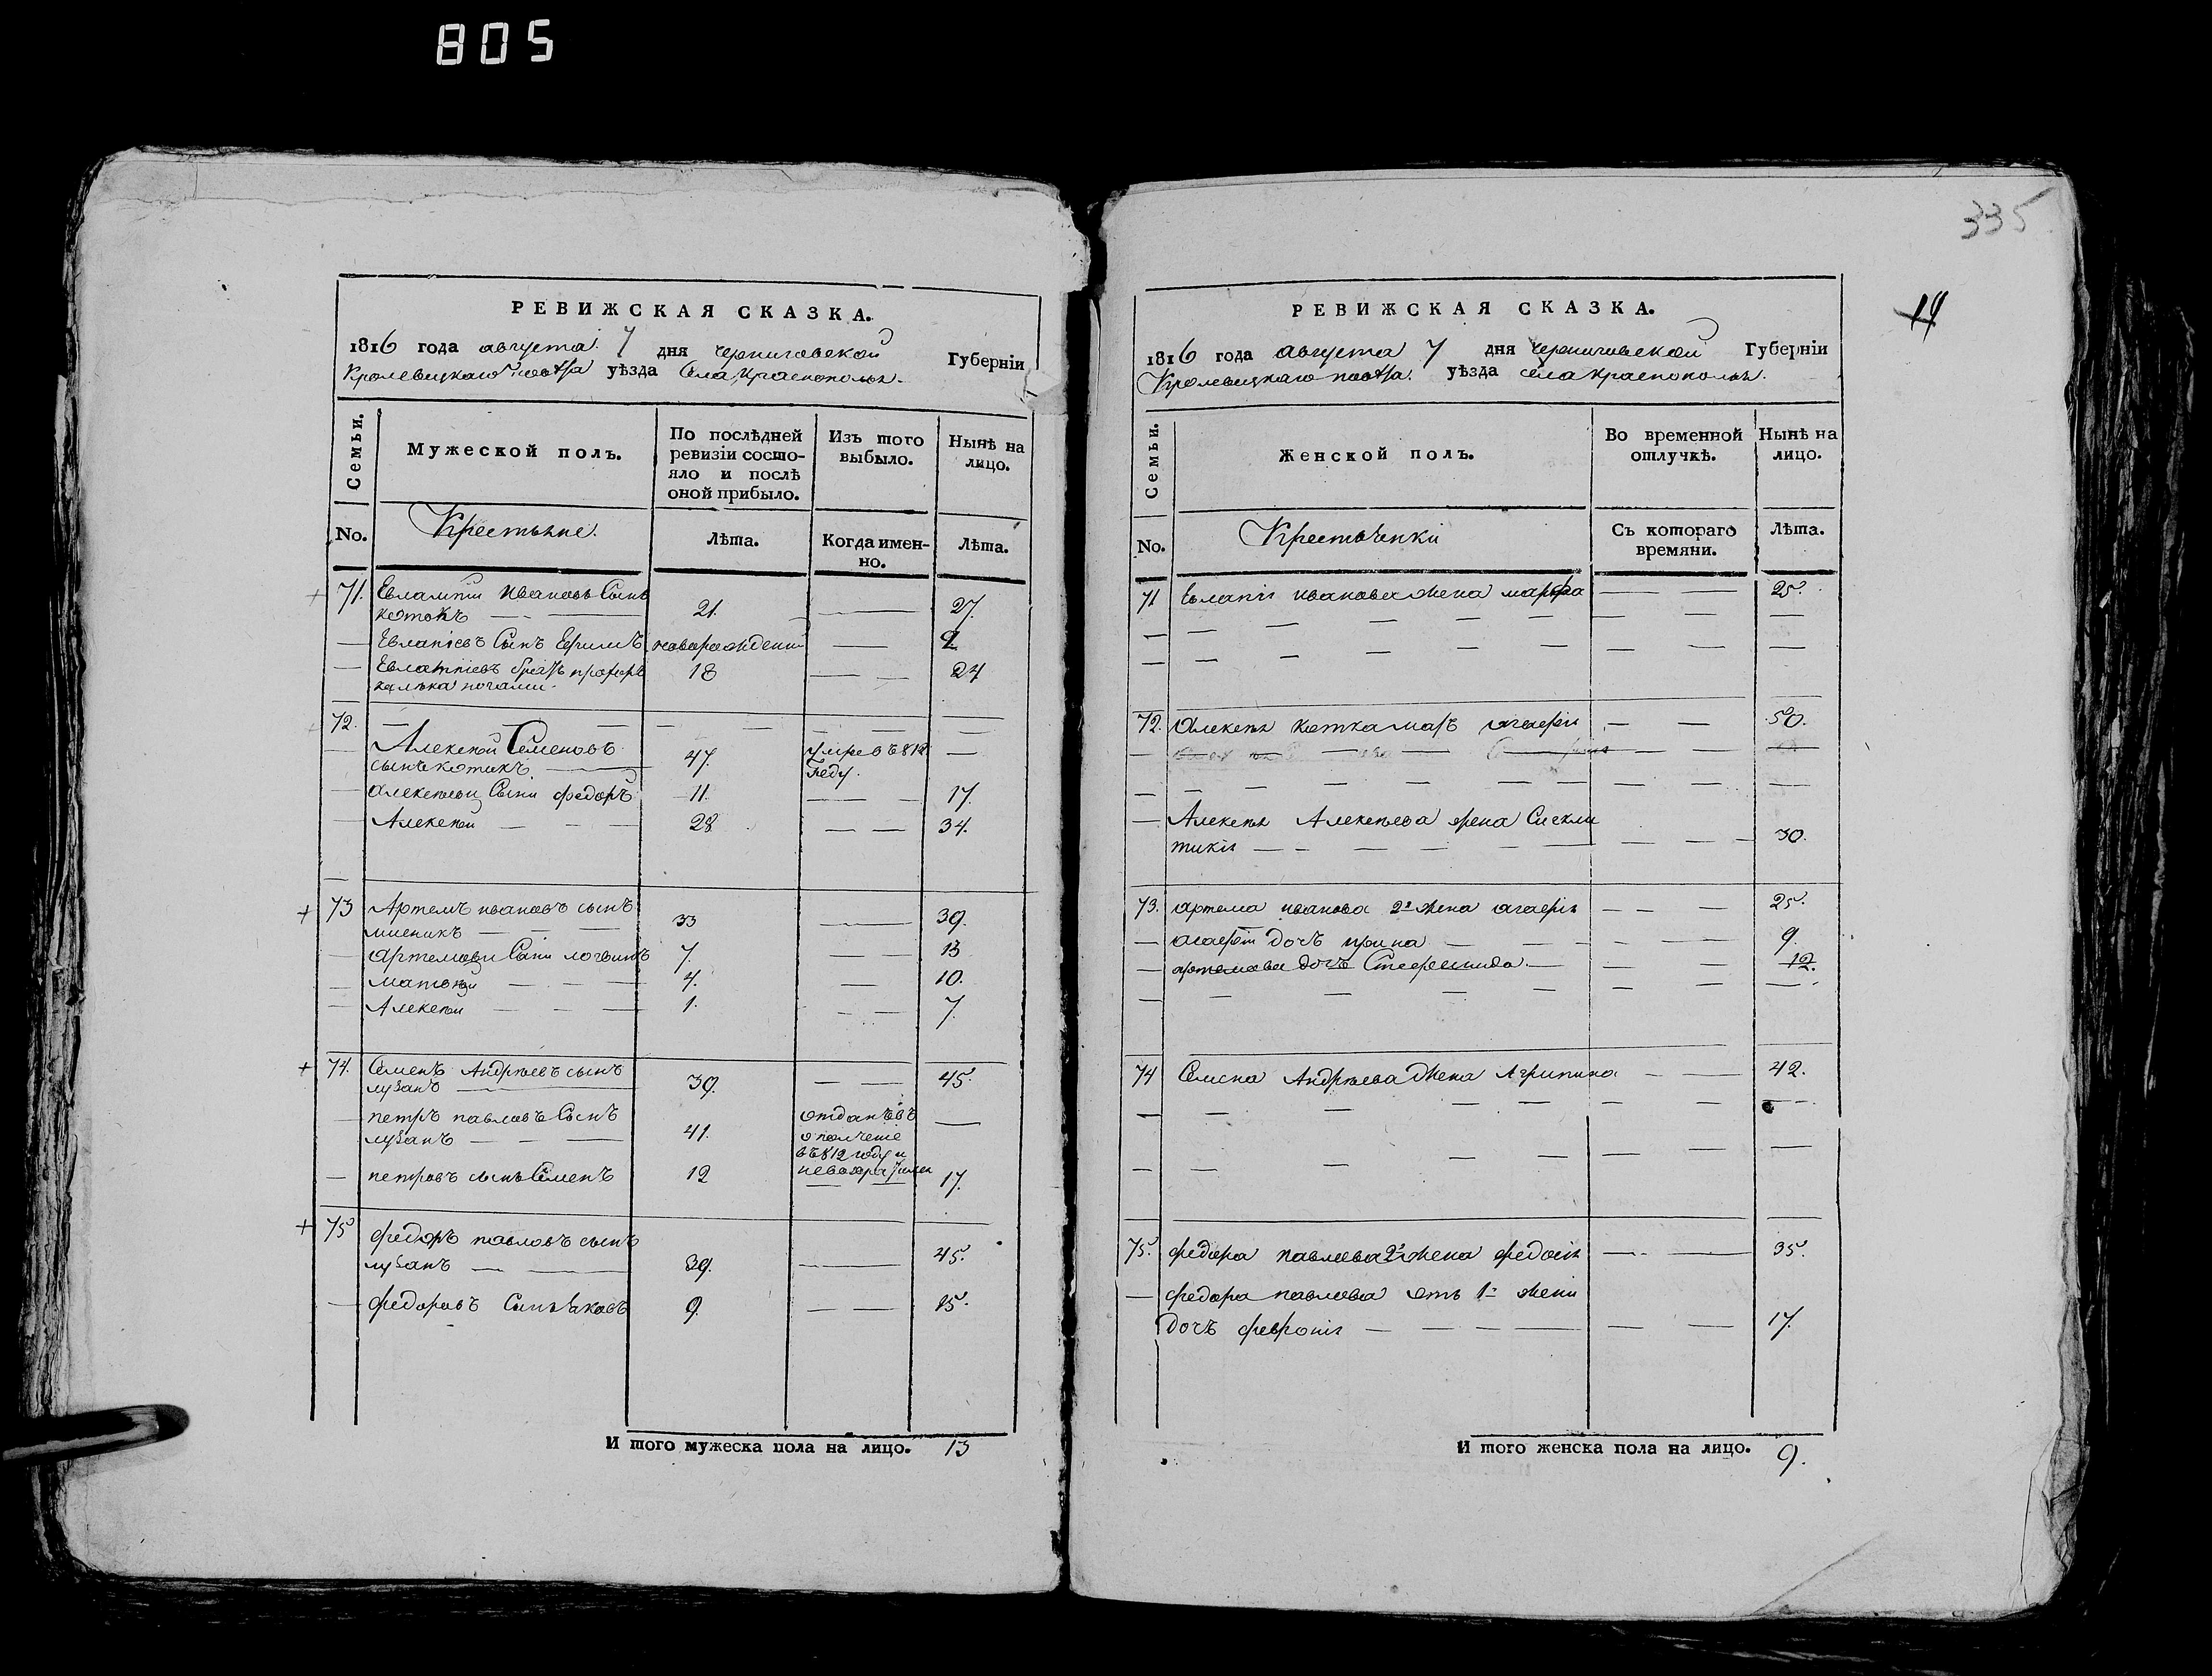 805
335
14
РЕВИЖСКАЯ СКАЗКА.
1816 года августа 7 дня черниговской Губернїи
Кролевецкаго повѣта уѣзда Села Краснополя.
Семьи.
Мужеской полъ.
По послѣдней ревизїи состо-
яло и послѣ
оной прибыло.
Изъ того
выбыло.
Нынѣ на
лицо.
No.
Крестьяне.
Лѣта.
Когда имен-
но.
Лѣта.
71. Евлампїй Ивановъ Сынъ
котокъ 21. 27.
Евлапїевъ Сынъ Ефимъ новорожденний 2
Евлампїевъ братъ
калѣка ногами. 18 24
72.
Алексѣй Семеновъ
сынъ котикъ 47. умре въ 812
году.
Алексѣеви Сыни федоръ 11. 17.
Алексѣй 28 34.
73 Артемъ ивановъ сынъ
33 39.
Артемови Сыни логвинъ 7. 13
Матвѣй 4. 10.
Алексѣй 1. 7.
74. Семенъ Андрѣевъ сынъ
лузанъ 39. 45.
петръ павловъ Сынъ
лузанъ 41. отданъ въ
ополченїе
въ 812 году и
невозвратился
петровъ сынъ Семенъ 12 17.
75 федоръ павловъ сынъ
лузанъ 39. 45.
федоровъ Сынъ Яковъ 9. 15.
И того мужеска пола на лицо. 13
РЕВИЖСКАЯ СКАЗКА.
1816 года августа 7 дня черниговской Губернїи
Кролевецкаго повѣта. уѣзда села Краснополя.
Семьи.
Женской полъ.
Во временной
отлучкѣ.
Нынѣ на
лицо.
No.
Крестьянки
Съ котораго
времяни.
Лѣта.
71 Евлапїя иванова жена марфа 25.
72. Алексѣя котка агафїя 50.
Алексѣя Алексѣева жена Сиекли
тикїя 30.
73. артема иванова 2я жена агафїя 25.
агафїи дочъ ирина 9.
артемова дочъ Стефанида 12.
74 Семена Андрѣева жена Агрипина 42.
75. федора павлова 2я жена федосїя 35.
федора павлова отъ 1й жени
дочъ февронїя 17.
И того женска пола на лицо. 9.